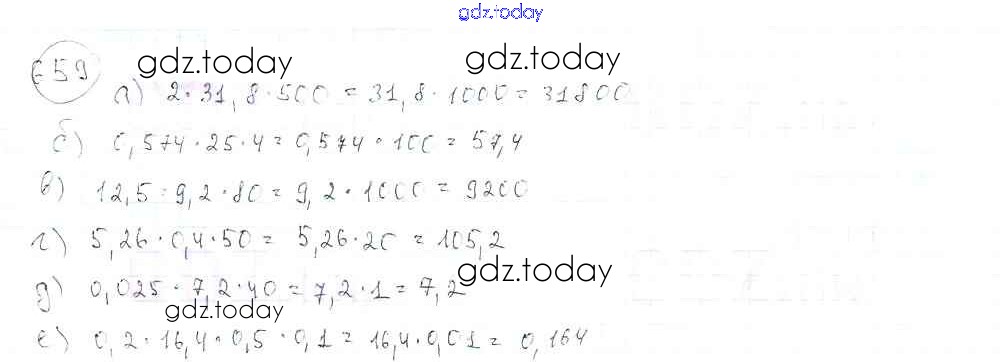 gdz.today
659 gdz.today gdz.today
а) 2·31,8·500 = 31,8·1000 = 31800
б) 0,574·25·4 = 0,574·100 = 57,4
в) 12,5·9,2·80 = 9,2·1000 = 9200
г) 5,26·0,4·50 = 5,26·20 = 105,2
gdz.today
д) 0,025·7,2·40 = 7,2·1 = 7,2
gdz.today
е) 0,2·16,4·0,5·0,1 = 16,4·0,01 = 0,164